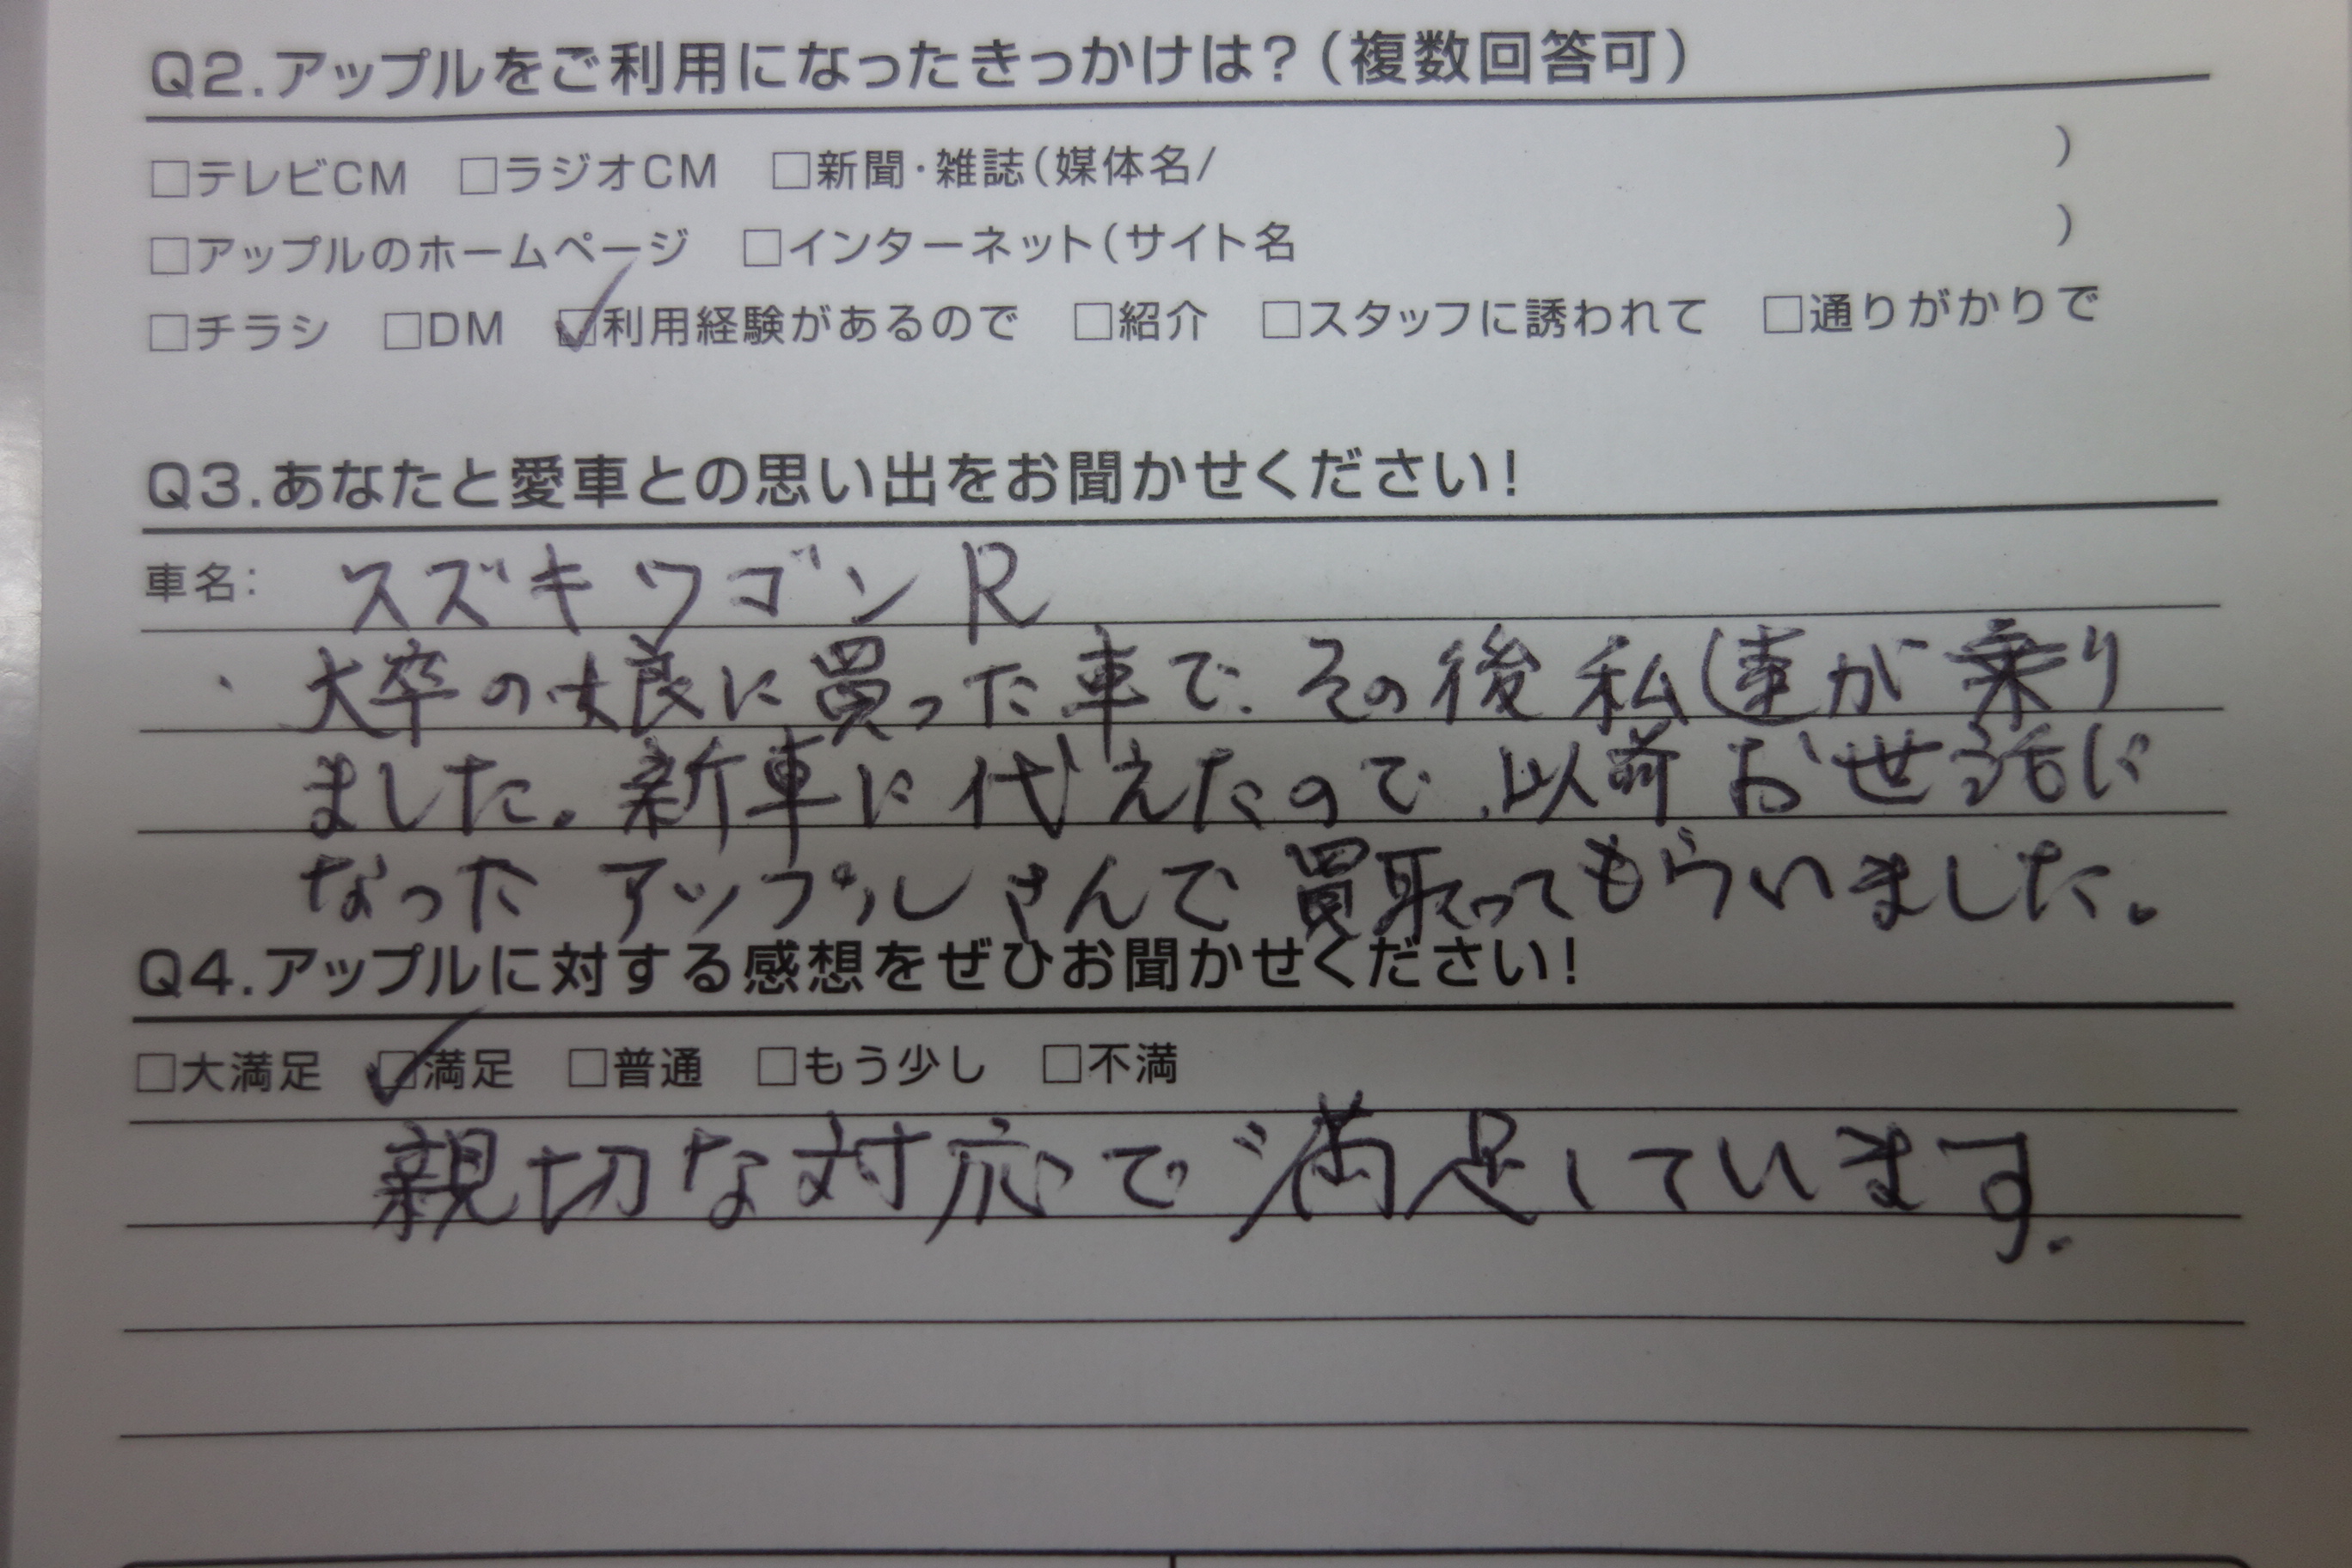 Q2.アップルをご利用になったきっかけは?(複数回答可)
□テレビCM □ラジオCM □新聞・雑誌(媒体名/ )
□アップルのホームページ □インターネット(サイト名 )
□チラシ □DM ☑利用経験があるので □紹介 □スタッフに誘われて □通りがかりで
Q3.あなたと愛車との思い出をお聞かせください!
車名: スズキワゴンR
大卒の娘に買った車で、その後私達が乗り
ました。新車に代えたので、以前お世話に
なったアップルさんで買取ってもらいました。
Q4.アップルに対する感想をぜひお聞かせください!
□大満足 ☑満足 □普通 □もう少し □不満
親切な対応で満足しています。